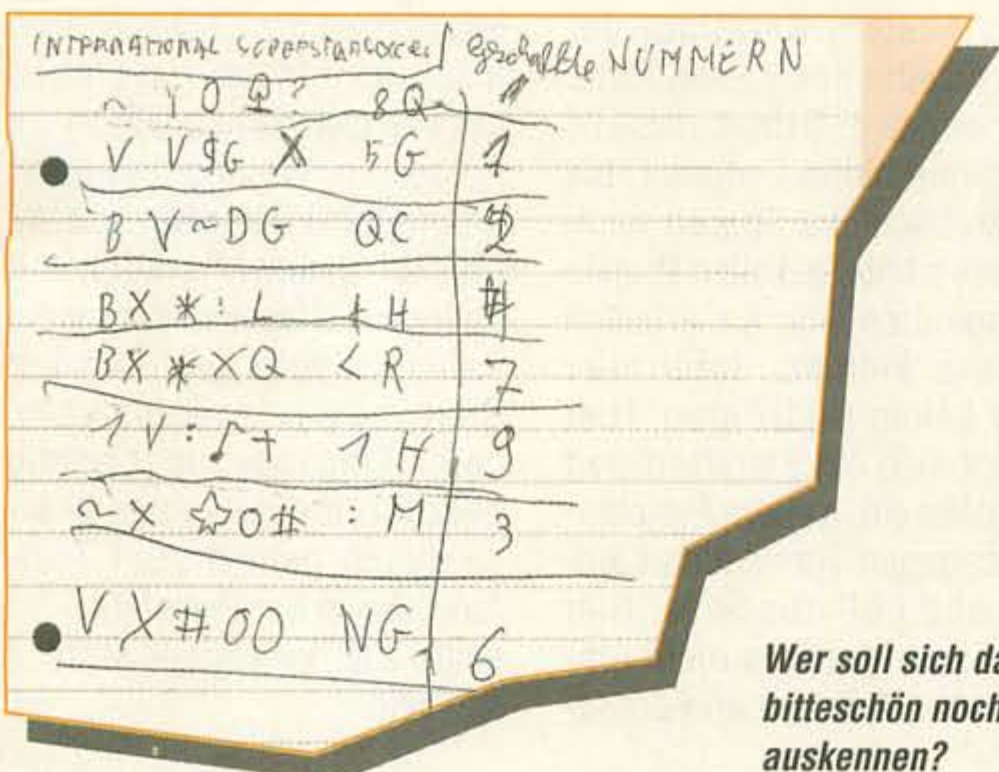 INTERNATIONAL geschaffte NUMMERN
~ Y O Q? 8Q
V V$G X 5G 1
B V~DG QC 2
BX *: L H
BX *XQ <R 7
1 V:♪+ 1 H 9
~X ☆O# :M 3
VX#OO NG 6
Wer soll sich da
bitteschön noch
auskennen?